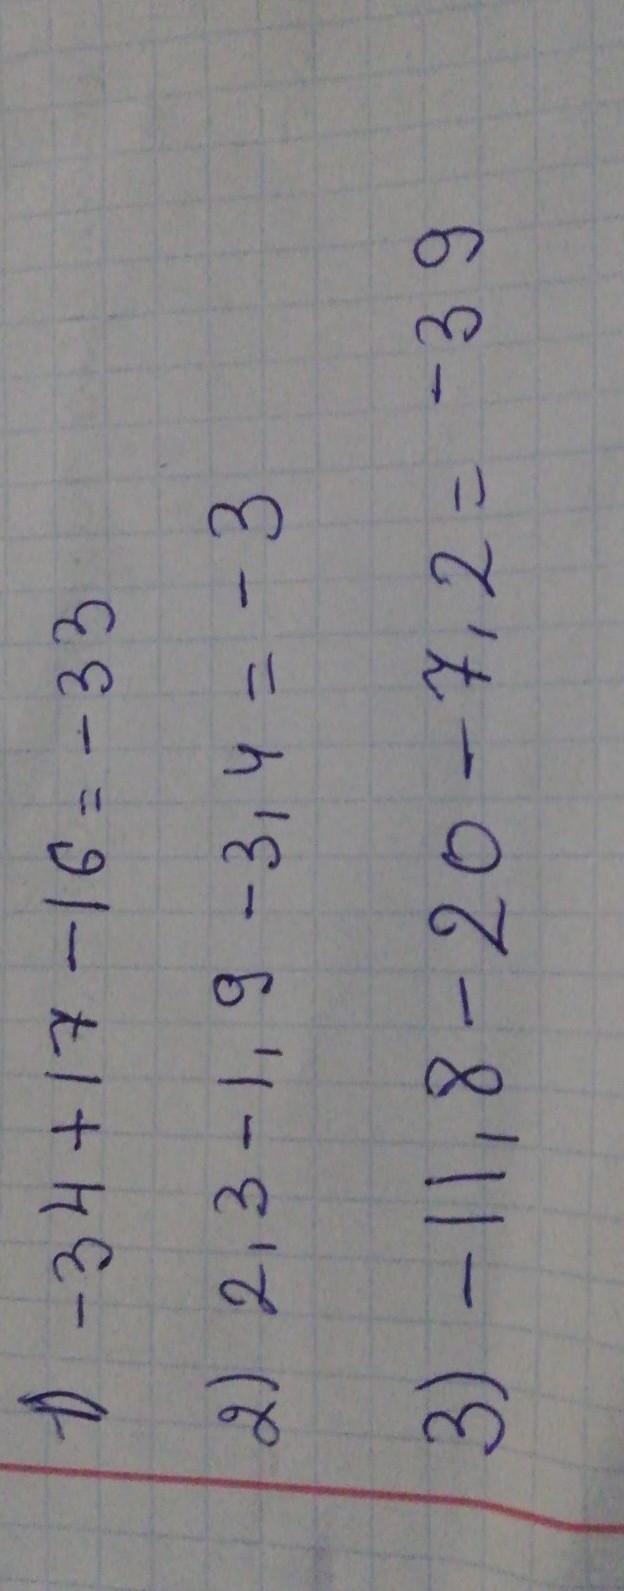 1) -34+17-16=-33
2) 2,3-1,9-3,4=-3
3) -11,8-20-7,2= -39